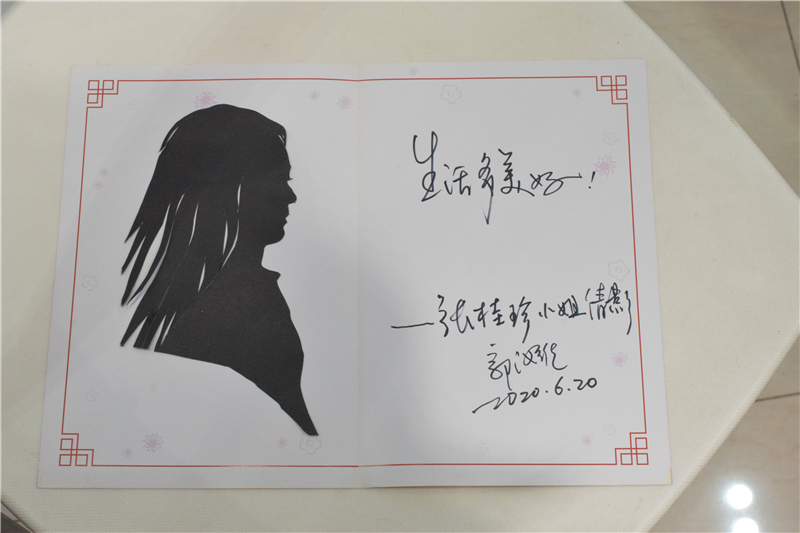 生活多美好!
—张桂珍小姐倩影
郭
2020.6.20